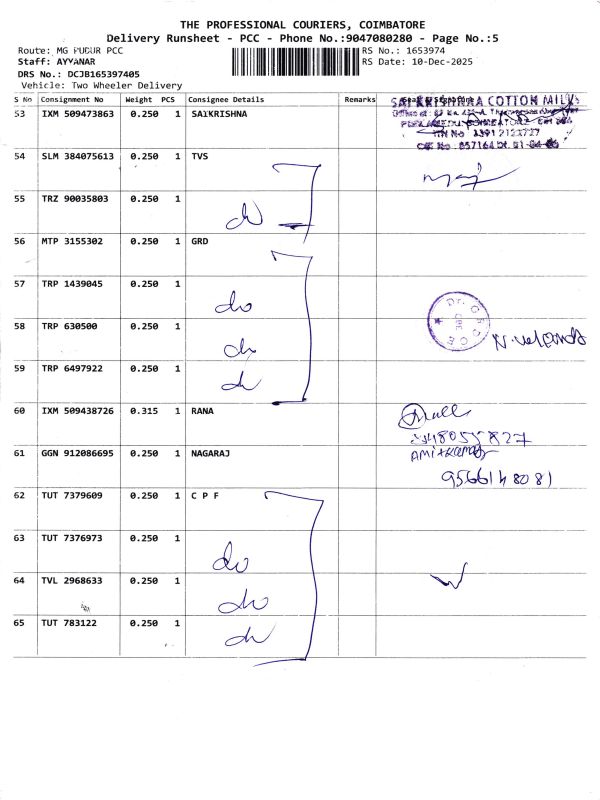 THE PROFESSIONAL COURIERS, COIMBATORE
Delivery Runsheet - PCC - Phone No.:9047080280 - Page No.:5
Route: MG PUDUR PCC
RS No.: 1653974
Staff: AYYANAR
RS Date: 10-Dec-2025
DRS No.: DCJB165397405
Vehicle: Two Wheeler Delivery
S No Consignment No Weight PCS Consignee Details Remarks
SAI KRISHNA COTTON MILLS
53 IXM 509473863 0.250 1 SAIKRISHNA
54 SLM 384075613 0.250 1 TVS
55 TRZ 90035803 0.250 1
do
56 MTP 3155302 0.250 1 GRD
57 TRP 1439045 0.250 1
do
58 TRP 630500 0.250 1
do
59 TRP 6497922 0.250 1
do
60 IXM 509438726 0.315 1 RANA
61 GGN 912086695 0.250 1 NAGARAJ
9566148081
62 TUT 7379609 0.250 1 C P F
63 TUT 7376973 0.250 1
do
64 TVL 2968633 0.250 1
do
65 TUT 783122 0.250 1
do